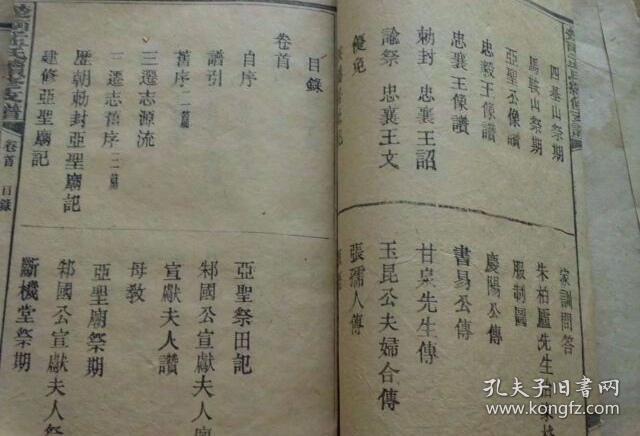 四基山祭期
馬鞍山祭期
亞聖公像讚
忠毅王像讚
忠襄王像讚
勅封 忠襄王詔
諭祭 忠襄王文
優免
家訓問答
朱柏廬先生
服制圖
慶陽公傳
書易公傳
甘泉先生傳
玉昆公夫婦合傳
張孺人傳
目錄
卷首
自序
譜引
舊序二篇
三遷志源流
三遷志舊序二篇
歷朝勅封亞聖廟記
建修亞聖廟記
亞聖祭田記
邾國公宣獻夫人
宣獻夫人讚
母教
亞聖廟祭期
邾國公宣獻夫人祭
斷機堂祭期
卷首
目錄
孔夫子旧书网
www.kongfz.com